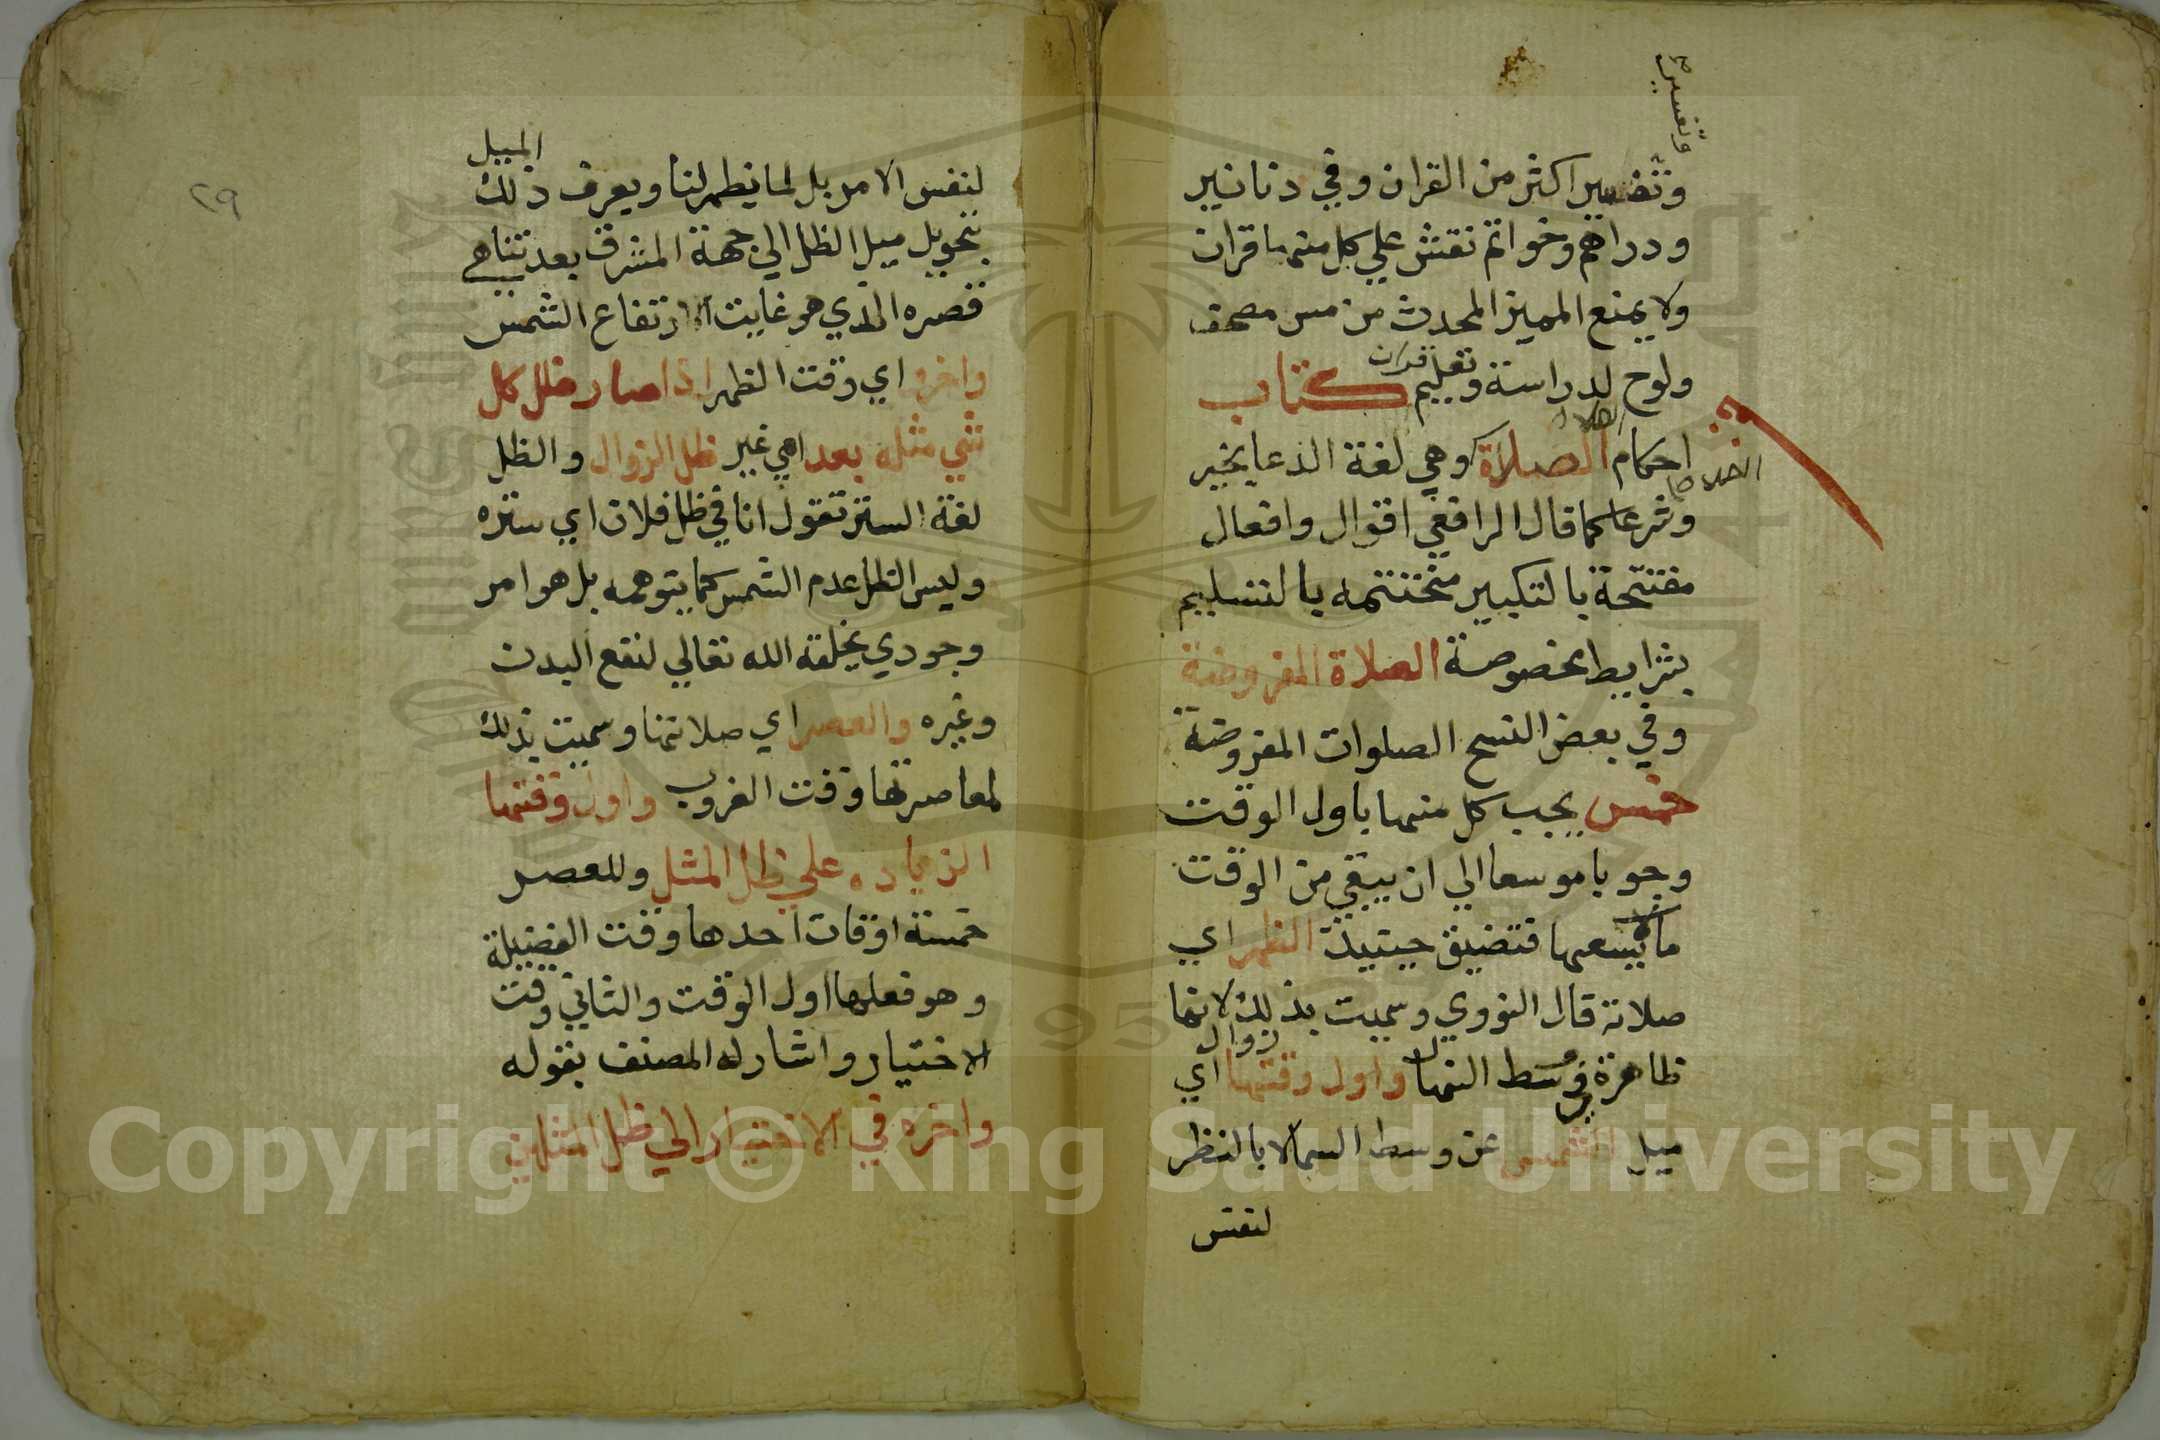 وتفسير
وتفسير اكثر من القران وفي دنانير
ودراهم وخواتم نقش علي كل منهما قران
ولا يمنع المميز المحدث من مس مصحف
ولوح لدراسة وتعليم قران كتاب
احكام الصلاة وهي لغة الدعا بخير
وشرعا كما قال الرافعي اقوال وافعال
مفتتحة بالتكبير مختتمه بالتسليم
بشرايط مخصوصة الصلاة المفروضة
وفي بعض النسخ الصلوات المفروضة
خمس يجب كل منهما باول الوقت
وجوبا موسعا الي ان يبقي من الوقت
ما يسعها فتضيق حينيذ الظهر اي
صلاته قال النووي وسميت بذلك لانها
ظاهرة في وسط النهار واول وقتها اي
زوال
ميل الشمس عن وسط السما لا بالنظر
لنفس
٢٩
لنفس الامر بل لما يظهر لنا ويعرف ذلك الميل
بتحويل ميل الظل الي جهة المشرق بعد تناهي
قصره الذي هو غايت ارتفاع الشمس
واخره اي وقت الظهر اذا صار ظل كل
شي مثله بعد اي غير ظل الزوال والظل
لغة الستر تقول انا في ظل فلان اي ستره
وليس الظل عدم الشمس كما يتوهمه بل هو امر
وجودي يخلقه الله تعالي لنفع البدن
وغيره والعصر اي صلاتها وسميت بذلك
لمعاصرتها وقت الغروب واول وقتها
الزياده علي ظل المثل وللعصر
خمسة اوقات احدها وقت الفضيلة
وهو فعلها اول الوقت والثاني وقت
الاختيار واشار له المصنف بقوله
واخره في الاختيار الي ظل المثلين
Copyright © King Saud University